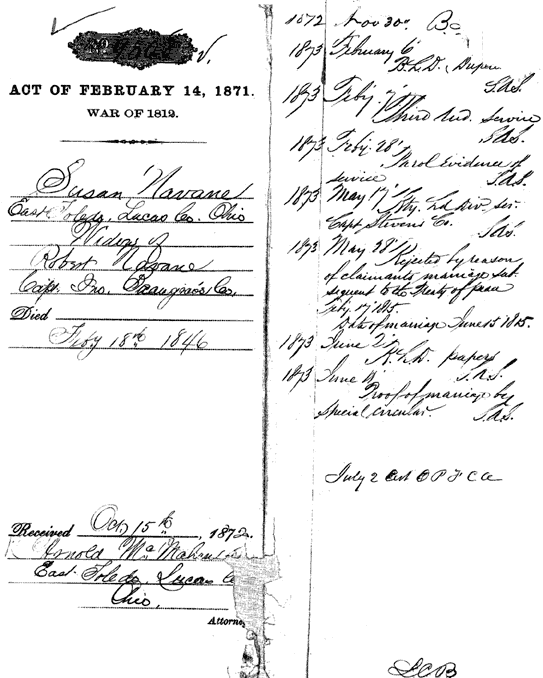 ACT OF FEBRUARY 14, 1871.
WAR OF 1812.
Susan Navane
East Toledo, Lucas Co. Ohio
Widow of
Robert Navane
Capt. Jno. Co.
Died
Feby 18th 1846
Received Oct 15th, 1872.
Arnold
East Toledo, Lucas Co
Ohio.
Attorney
1872 Nov 30" Bo
1873 February 6"
B.L.D.
S.A.S.
1873 Feby. 7"
Third Aud. service
S.A.S.
1873 Feby. 28"
Parol Evidence of
service S.A.S.
1873 May 17"
Capt Stevens Co. S.A.S.
1873 May 28"
Rejected by reason
of claimants marriage sub
sequent to the Treaty of peace
Feby. 17, 1815.
Date of marriage June 15 1815.
1873 June 2"
papers
1873 June S.A.S.
Proof of marriage by
special circular. S.A.S.
July 2